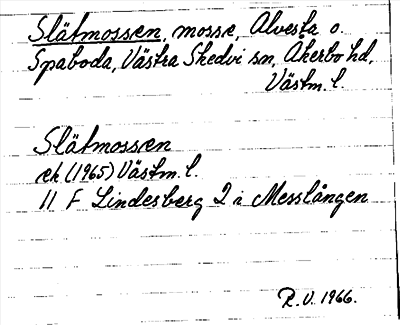 Slätmossen, mosse, Alvesta o.
Spaboda, Västra Skedvi sn, Åkerbo hd,
Västm. l.
Slätmossen
ek (1965) Västm. l.
11 F Lindesberg 2 i Messlången
R. V. 1966.